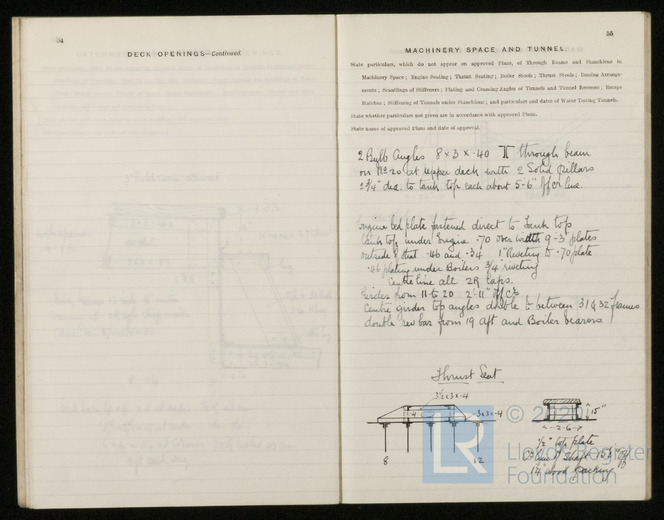 54
DECK OPENINGS—Continued.
55
MACHINERY SPACE AND TUNNEL.
State particulars, which do not appear on approved Plans, of Through Beams and Stanchions in
Machinery Space; Engine Seating; Thrust Seating; Boiler Stools; Thrust Stools; Bossing Arrange-
ments; Scantlings of Stiffeners; Plating and Crossing Angles of Tunnels and Tunnel Recesses; Escape
Hatches; Stiffening of Tunnels under Stanchions; and particulars and dates of Water Testing Tunnels.
State whether particulars not given are in accordance with approved Plans.
State name of approved Plans and date of approval.
2 Bulb Angles 8 x 3 x .40 through beam
on No 20 at upper deck with 2 Solid Pillars
2 3/4" dia. to tank top each about 5'-6" off Cr line.
Engine bed plate fastened direct to Tank top
Tank top under Engine .70 over width 9-3 plates
outside of that .46 and .34 1" Riveting to .70 plate
.46 plating under Boilers 3/4 riveting
Centre line all 2R laps.
Girders from 11 to 20 2'-11" off C
Centre girder top angles double to between 31 & 32 frames
double rev bar from 19 aft and Boiler bearers
Thrust Seat
3 1/2 x 3 x .4
.4
3 x 3 x .4
8
12
15"
2-6
1/2" top plate
1 1/4 wood packing
© 2020
LR
Lloyd's Register
Foundation